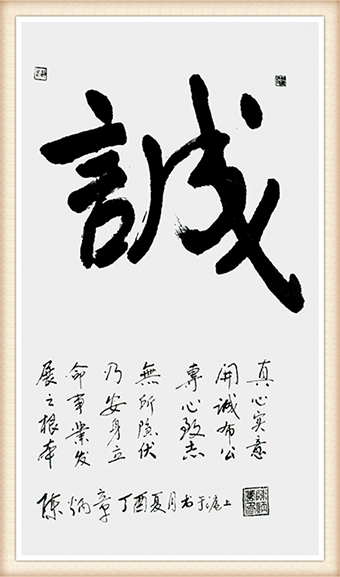 誠
真心实意
開誠布公
專心致志
無所隐伏
乃安身立
命事業发
展之根本
陳炳章丁酉夏月书于滬上